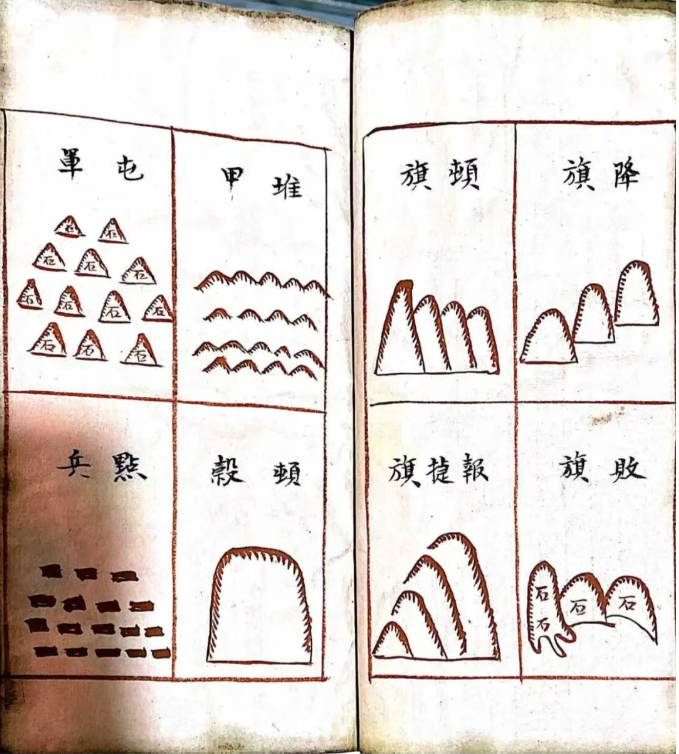 降旗
頓旗
敗旗
石
石
石
石
報捷旗
堆甲
屯軍
石 石
石 石 石
石 石 石 石
石 石 石
頓穀
點兵